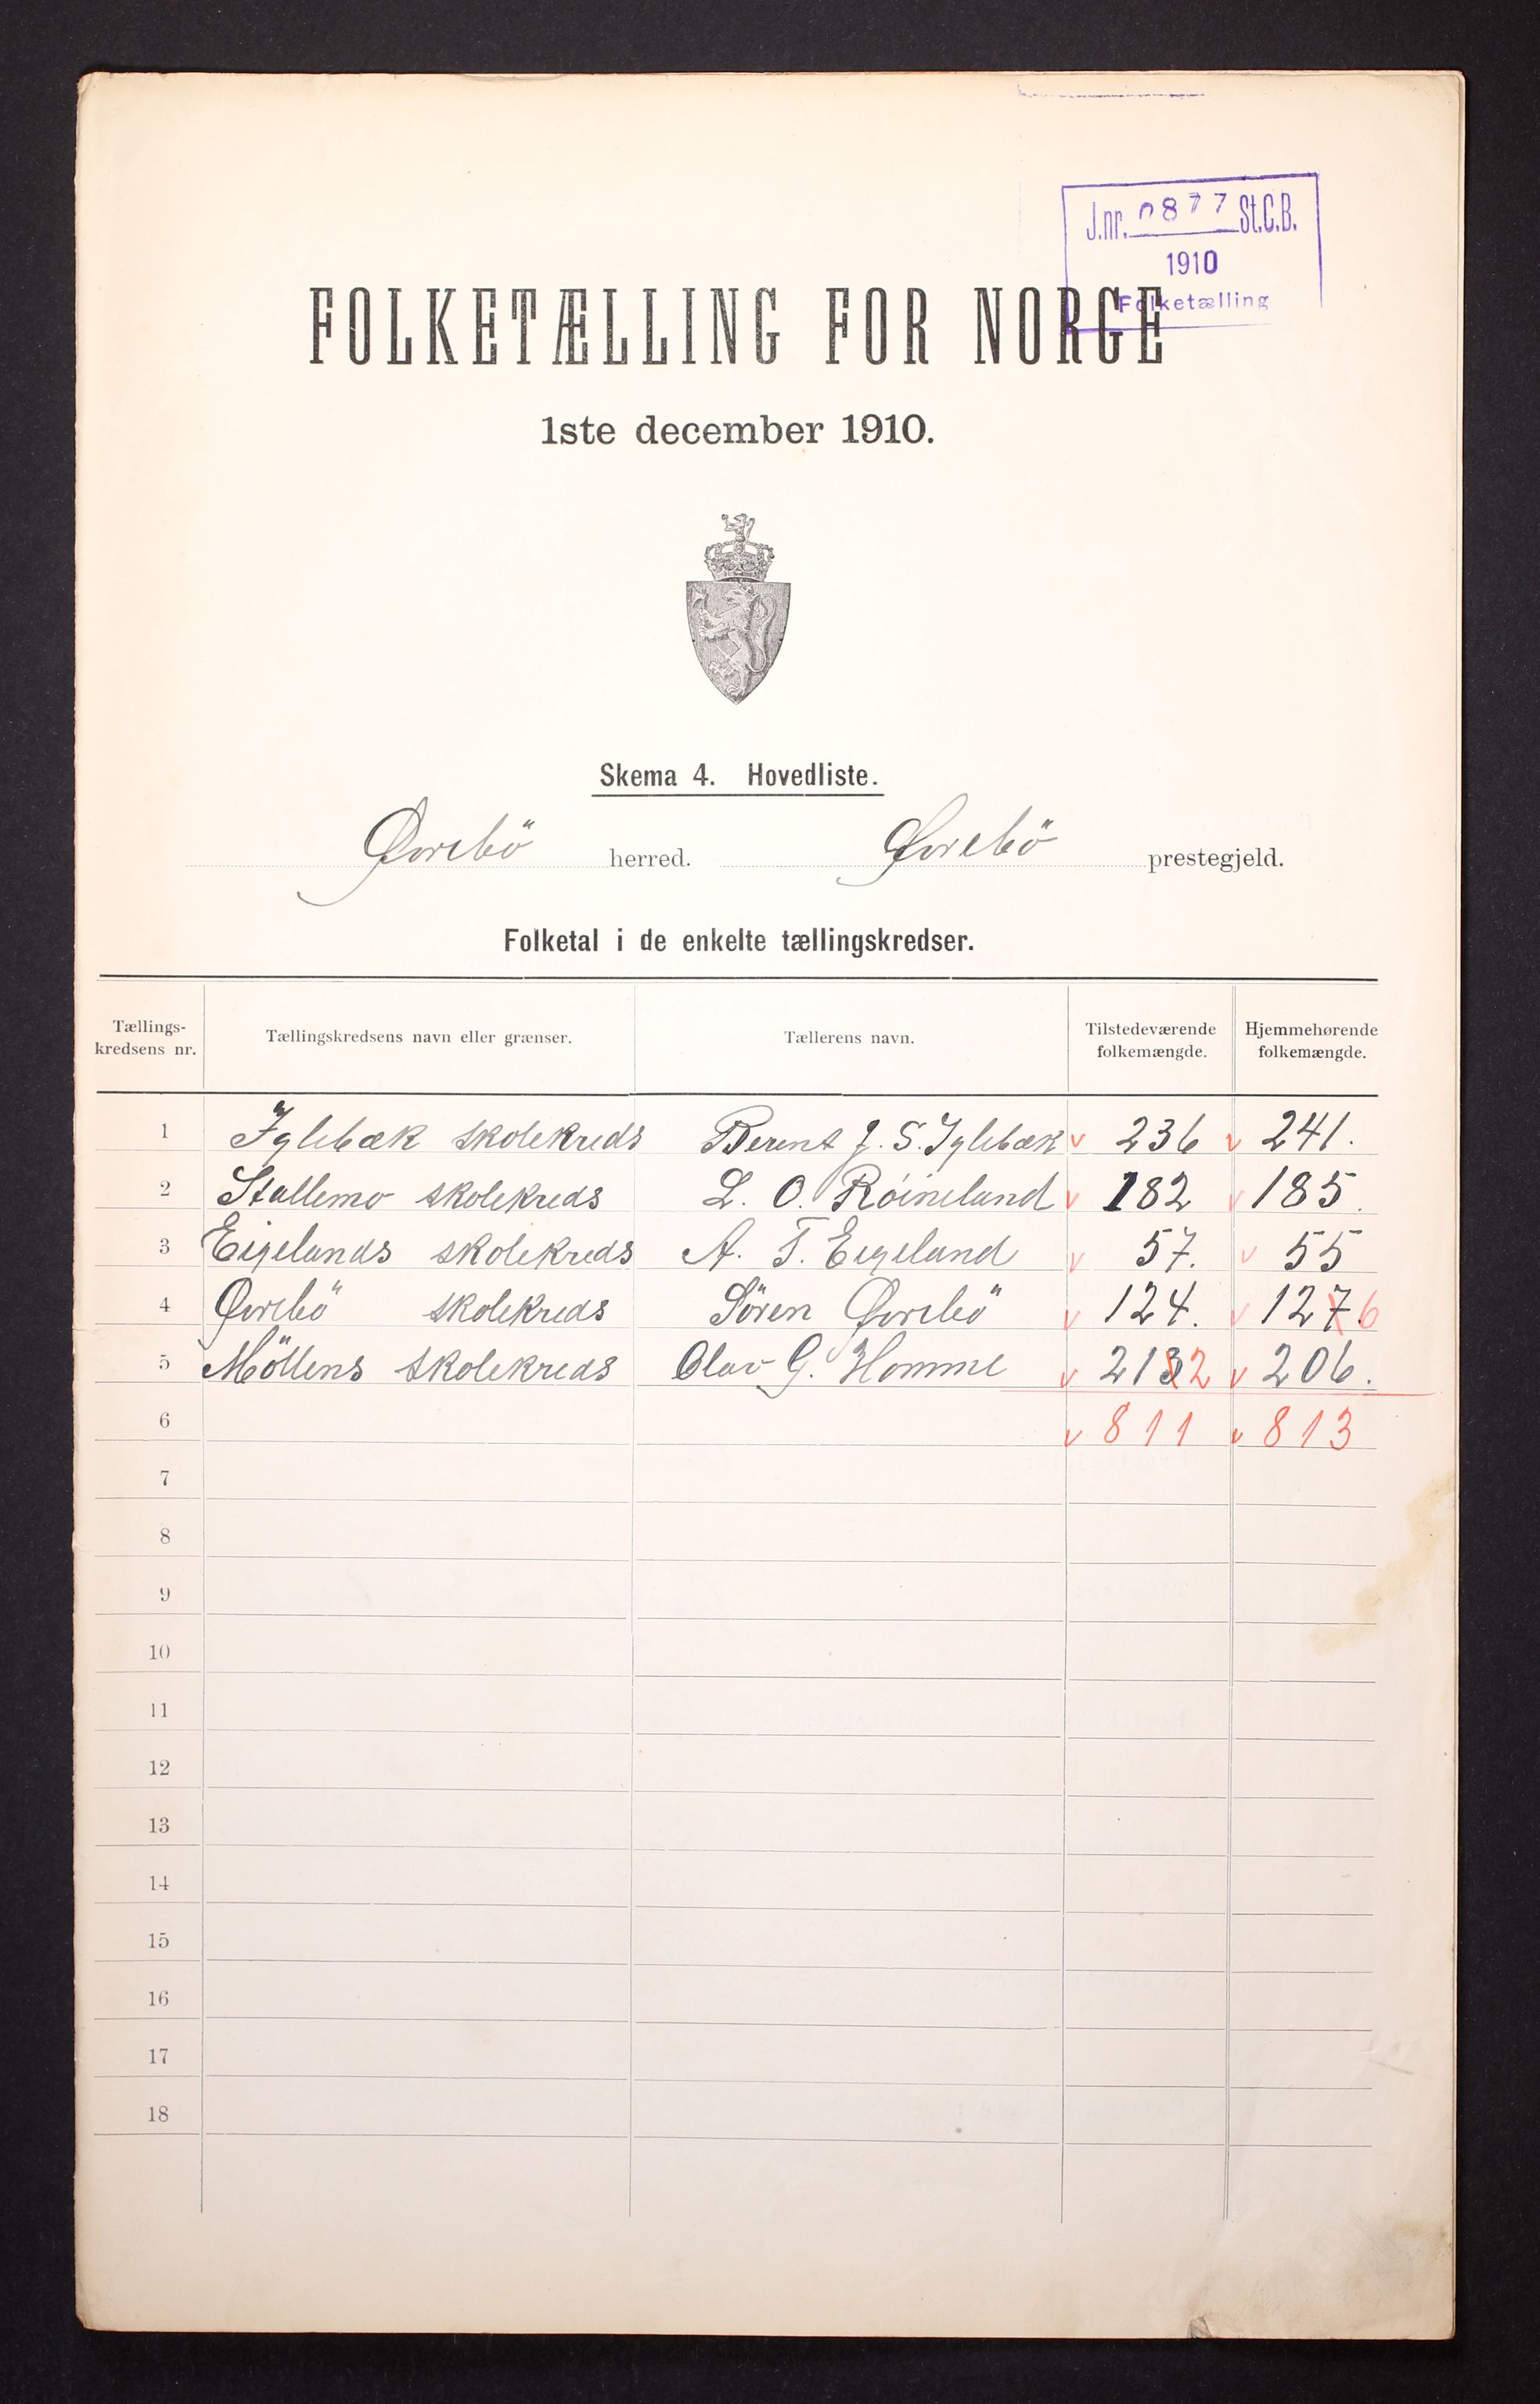 J.nr. 0877 St.C.B.
1910
Folketælling
FOLKETÆLLING FOR NORGE
1ste december 1910.
Skema 4. Hovedliste.
Øvrebö herred. Øvrebö prestegjeld.
Folketal i de enkelte tællingskredser.
Tællings-kredsens nr. Tællingskredsens navn eller grænser. Tællerens navn. Tilstedeværende folkemængde. Hjemmehørende folkemængde.
1 Iglebæk skolekreds Berent J. S. Iglebæk v 236 v 241.
2 Stallemo skolekreds L. O. Röineland v 182 v 185.
3 Eigelands skolekreds A. T. Eigeland v 57. v 55
4 Øvrebö skolekreds Sören Øvrebö v 124. v 127 6
5 Möllens skolekreds Olav G. Homme v 213 2 v 206.
6 v 811 v 813
7
8
9
10
11
12
13
14
15
16
17
18